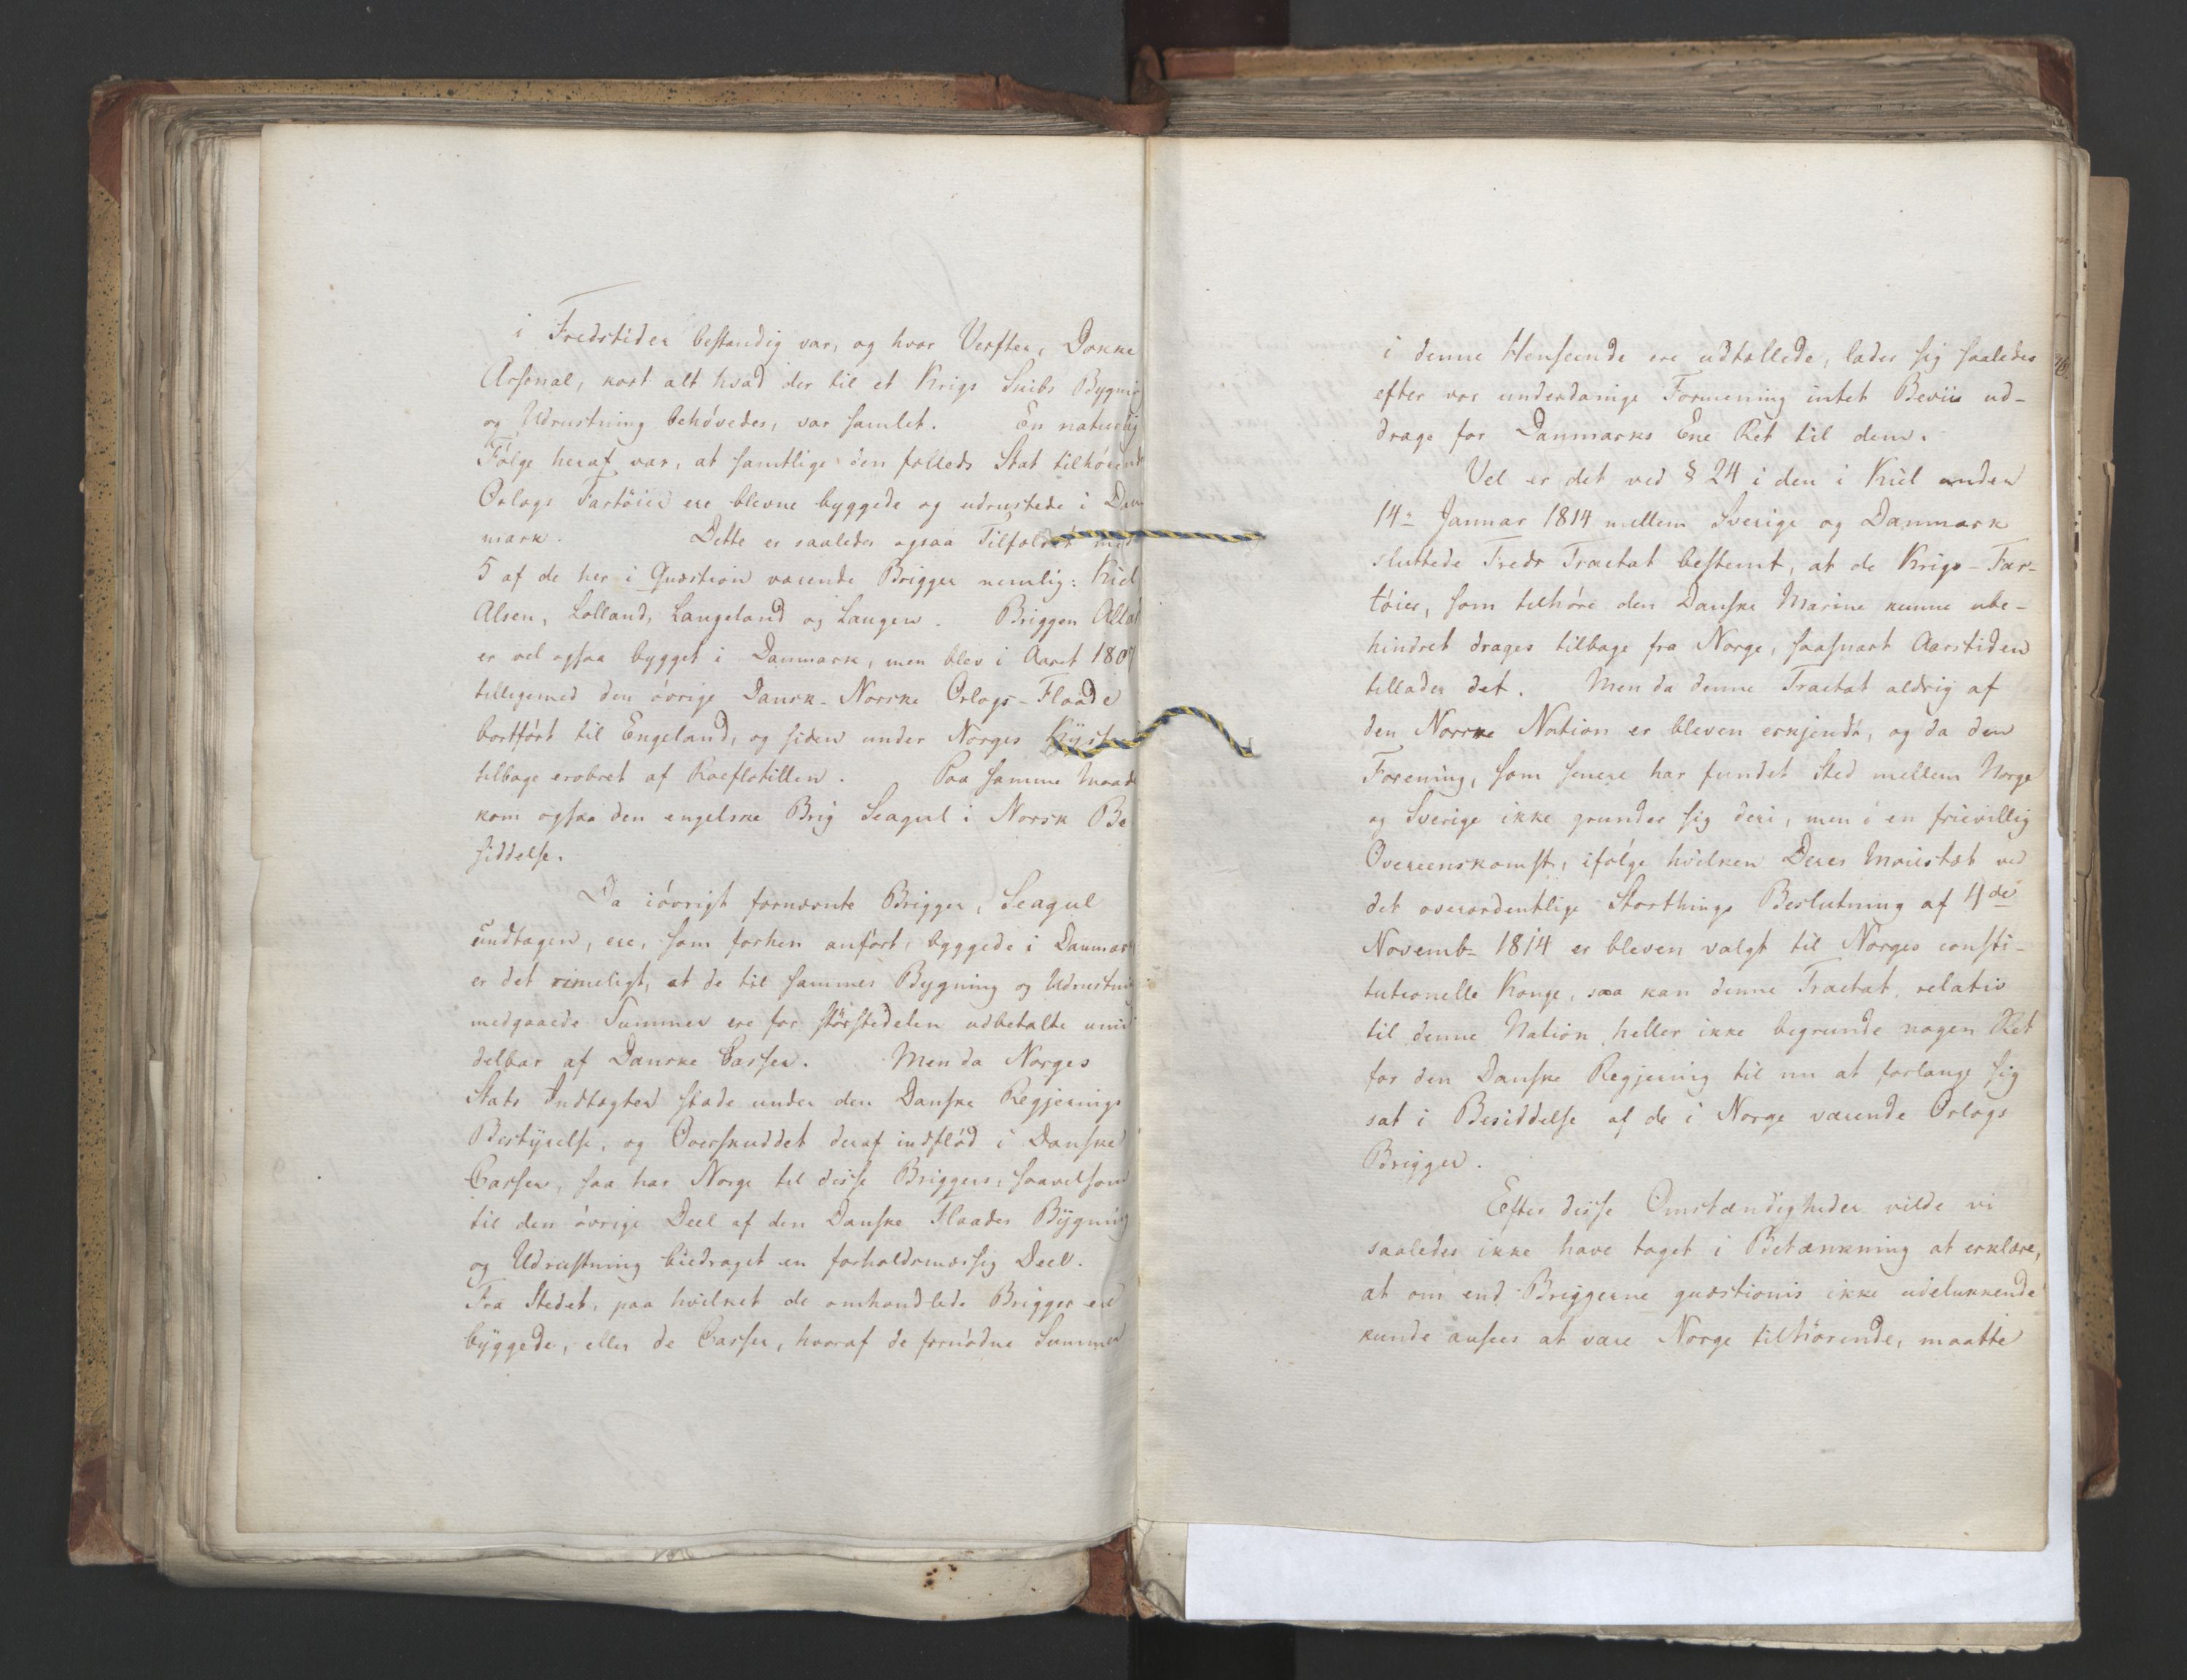 i Fredstider bestandig var, og hvor Verfter, Dokke
Arsenal, kort alt hvad der til et Krigs Skibs Bygnin
og Udrustning behövedes, var samlet. En naturlig
Fölge heraf var, at samtlige den fælleds Stat tilhörend
Orlogs Fartöier ere blevne byggede og udrustede i Dan
mark. Dette er saaledes ogsaa Tilfældet med
5 af de her i Quæstion værende Brigger nemlig: Kiel
Alsen, Lolland, Langeland og Laugen. Briggen Allart
er vel ogsaa bygget i Danmark, men blev i Aaret 1807
tilligemed den övrige Dansk-Norske Orlogs-Flaade
bortfört til Engeland, og siden under Norges Kÿst
tilbage erobret af Roeflotillen. Paa samme Maade
kom ogsaa den engelske Brig Seagul i Norsk Be
siddelse.
Da iövrigt fornævnte Brigger, Seagul
undtagen, ere, som forhen anfört, byggede i Danmark
er det rimeligt, at de til sammes Bygning og Udrustni
medgaaede Summer ere for störstedelen udbetalte umid
delbar af Danske Casser. Men da Norges
Stats Indtægter stode under den Danske Regjerings
Bestÿrelse, og Overskuddet deraf indflöd i Danske
Casser, saa har Norge til disse Briggers, saavelsom
til den övrige Deel af den Danske Flaades Bÿgning
og Udrustning biedraget en forholdsmæssig Deel.
Fra Stedet, paa hvilket de omhandlede Brigger ere
bÿggede, eller de Casser, hvoraf de fornödne Summer
i denne Henseende ere udtællede, lader sig saaledes
efter vor underdanige Formening intet Beviis ud-
drage for Danmarks Ene Ret til dem.
Vel er det ved § 24 i den i Kiel under
14de Januar 1814 mellem Sverige og Danmark
sluttede Freds Tractat bestemt, at de Krigs-Far-
töier, som tilhöre den Danske Marine kunne ube-
hindret drages tilbage fra Norge, saasnart Aarstiden
tillader det. Men da denne Tractat aldrig af
den Norske Nation er bleven erkjendt, og da den
Forening, som senere har fundet Sted mellem Norge
og Sverige ikke grunder sig deri, men i en frievillig
Overeenskomst, ifölge hvilken Deres Majestæt ved
det overordentlige Storthings Beslutning af 4de
Novemb. 1814 er bleven valgt til Norges consti-
tutionelle Konge, saa kan denne Tractat, relativ
til denne Nation, heller ikke begrunde nogen Ret
for den Danske Regjering til nu at forlange sig
sat i Besiddelse af de i Norge værende Orlogs
Brigger.
Efter disse Omstændigheder vilde vi
saaledes ikke have taget i Betænkning at erklære,
at om end Briggerne quæstionis ikke udelukkende
kunde ansees at være Norge tilhörende, maatte